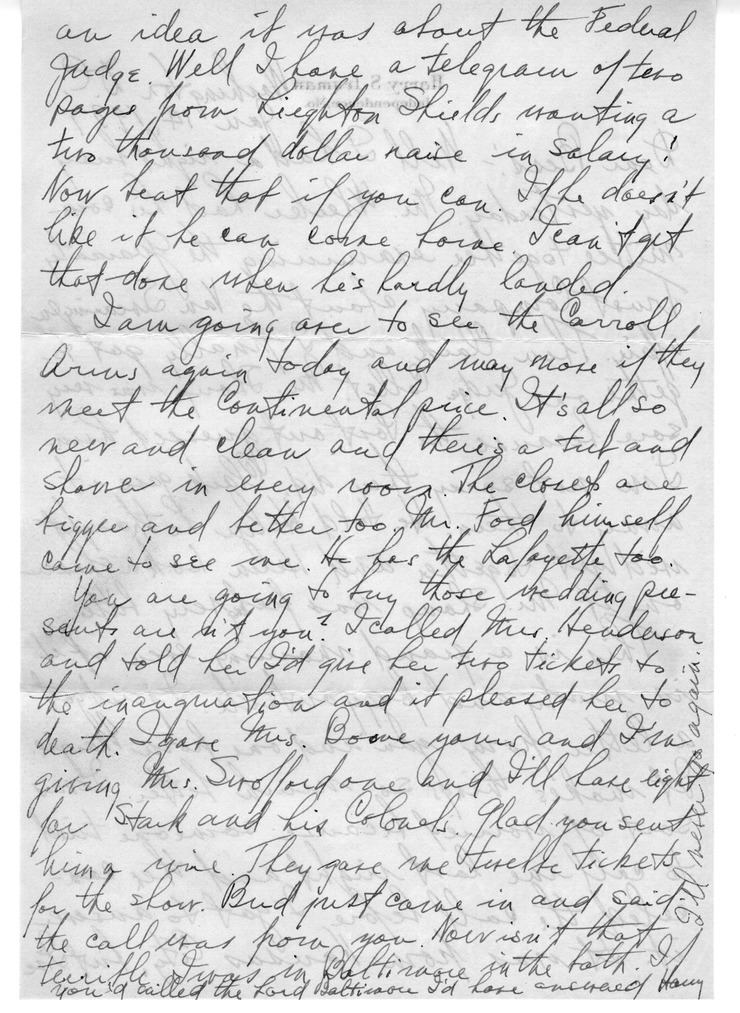 an idea it was about the Federal
Judge. Well I have a telegram of two
pages from Leighton Shields wanting a
two thousand dollar raise in salary!
Now beat that if you can. If he doesn't
like it he can come home. I can't get
that done when he's hardly landed.
I am going over to see the Carroll
Arms again today and may move if they
meet the Continental price. It's all so
new and clean and there's a tub and
shower in every room. The closets are
bigger and better too. Mr. Ford himself
came to see me. He has the Lafayette too.
You are going to buy those wedding pre-
sents are n't you? I called Mrs. Henderson
and told her I'd give her two tickets to
the inauguration and it pleased her to
death. I gave Mrs. Bowe yours and I'm
giving Mrs. Swofford one and I'll have eight
for Stark and his Colonels. Glad you sent
him a wire. They gave me twelve tickets
for the show. Bud just came in and said
the call was from you. Now isn't that
terrible. I was in Baltimore in the bath. If
you'd called the Lord Baltimore I'd have answered Harry
I'll never go again.
Harry S. Truman
Independence, Mo.